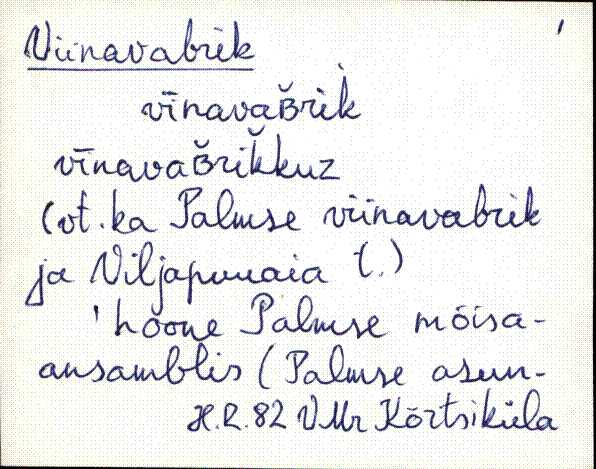 Viinavabrik
vīnavaʙ̆rik̀
vīnavaʙ̆rik̆kuz
(vt. ka Palmse viinavabrik
ja Viljapuuaia t.)
'hoone Palmse mõisa-
ansamblis (Palmse asun-
H.R. 82 VMr Kõrtsiküla